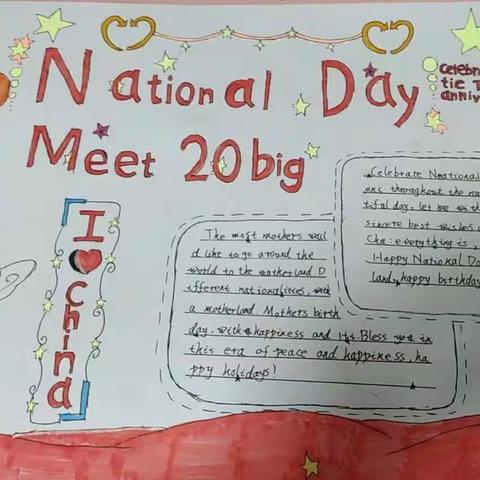 National Day
Meet 20big
Celebra
tie T
anniv
I
china
The most mothers woul
d like to go around the
world to the motherland D
ifferent nationalities, with
a motherland. Mothers birth
day, with happiness and
Bless you in
this era of peace and happiness, ha
ppy holidays!
Celebrate Neational
ens throughout the na
tiful day, let me with
sincere best wishes
everything is
Happy National Da
land, happy birthday